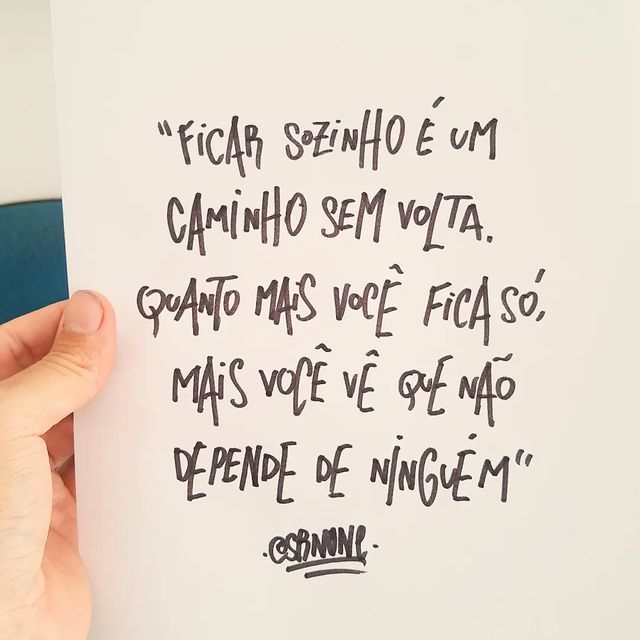 "FiCAR SOZiNHO É UM
CAMiNHO SEM VOLTA.
QUANTO MAiS VOCÊ FiCA SÓ,
MAiS VOCÊ VÊ QUE NÃO
DEPENDE DE NiNGUÉM"
·@SRNONE·